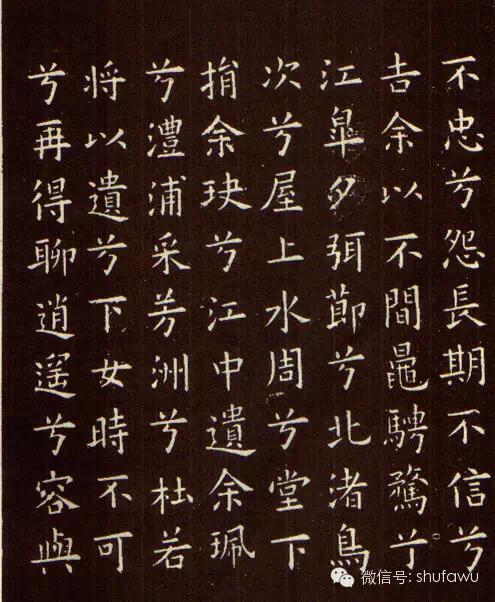 不忠兮怨長期不信兮
告余以不間鼂騁騖兮
江皐夕弭節兮北渚鳥
次兮屋上水周兮堂下
捐余玦兮江中遺余珮
兮澧浦采芳洲兮杜若
将以遺兮下女時不可
兮再得聊逍遥兮容與
微信号: shufawu